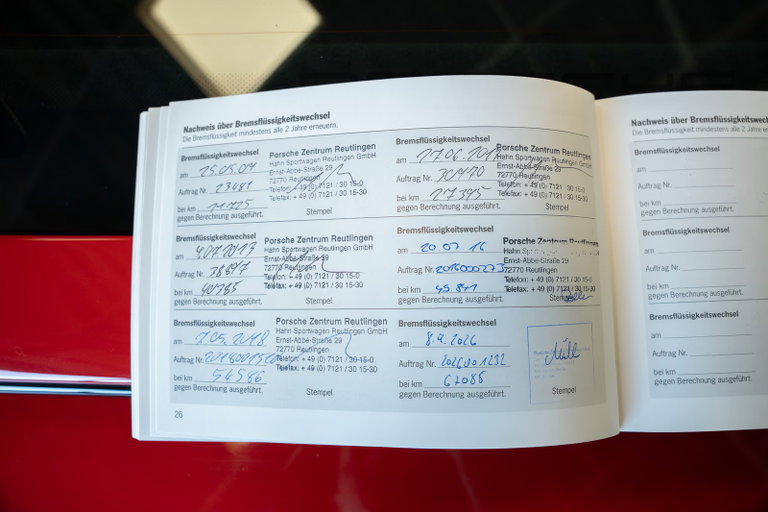 Nachweis über Bremsflüssigkeitswechsel
Die Bremsflüssigkeit mindestens alle 2 Jahre erneuern.
Bremsflüssigkeitswechsel
am 25.05.09
Auftrag Nr. 23481
bei km
gegen Berechnung ausgeführt.
Porsche Zentrum Reutlingen
Hahn Sportwagen Reutlingen GmbH
Ernst-Abbe-Straße 29
72770 Reutlingen
Telefon: + 49 (0) 7121 / 30 15-0
Telefax: + 49 (0) 7121 / 30 15-30
Stempel
Bremsflüssigkeitswechsel
am 17.06.2011
Auftrag Nr. 301970
bei km 27395
gegen Berechnung ausgeführt.
Porsche Zentrum Reutlingen
Hahn Sportwagen Reutlingen GmbH
Ernst-Abbe-Straße 29
72770 Reutlingen
Telefon: + 49 (0) 7121 / 30 15-0
Telefax: + 49 (0) 7121 / 30 15-30
Stempel
Bremsflüssigkeitswechsel
am
Auftrag Nr.
bei km 40365
gegen Berechnung ausgeführt.
Porsche Zentrum Reutlingen
Hahn Sportwagen Reutlingen GmbH
Ernst-Abbe-Straße 29
72770 Reutlingen
Telefon: + 49 (0) 7121 / 30 15-0
Telefax: + 49 (0) 7121 / 30 15-30
Stempel
Bremsflüssigkeitswechsel
am 20.07.16
Auftrag Nr.
bei km
gegen Berechnung ausgeführt.
Porsche Zentrum Reutlingen
Hahn
Ernst-Abbe-Straße 29
72770 Reutlingen
Telefon: + 49 (0) 7121 / 30 15-0
Telefax: + 49 (0) 7121 / 30 15-30
Stempel
Bremsflüssigkeitswechsel
am
Auftrag Nr.
bei km 54586
gegen Berechnung ausgeführt.
Porsche Zentrum Reutlingen
Hahn Sportwagen Reutlingen GmbH
Ernst-Abbe-Straße 29
72770 Reutlingen
Telefon: + 49 (0) 7121 / 30 15-0
Telefax: + 49 (0) 7121 / 30 15-30
Stempel
Bremsflüssigkeitswechsel
am
Auftrag Nr.
bei km 62085
gegen Berechnung ausgeführt.
Stempel
26
Nachweis über Bremsflüssigkeitswech
Die Bremsflüssigkeit mindestens alle 2 Jahre er
Bremsflüssigkeitswechsel
am
Auftrag Nr.
bei km
gegen Berechnung ausgeführt.
Bremsflüssigkeitswechsel
am
Auftrag Nr.
bei km
gegen Berechnung ausgeführt.
Bremsflüssigkeitswechsel
am
Auftrag Nr.
bei km
gegen Berechnung ausgeführt.